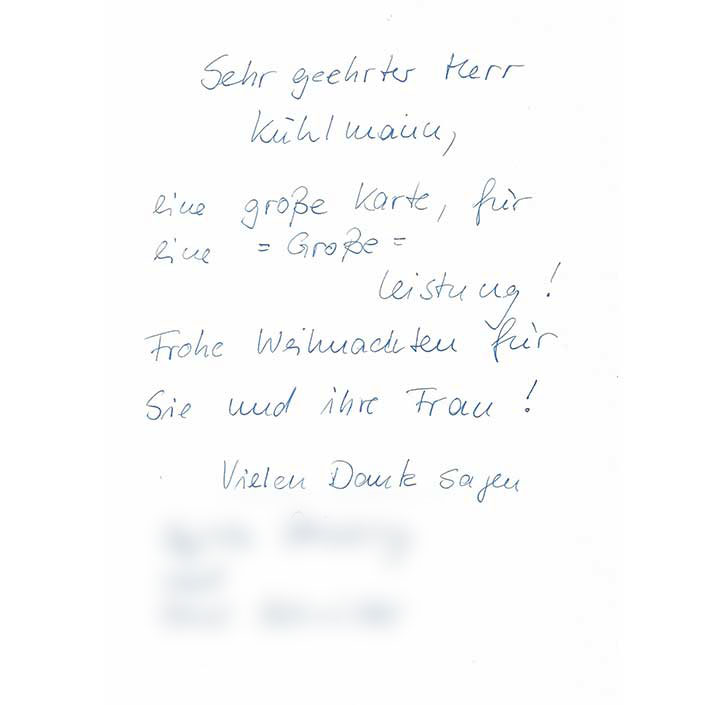 Sehr geehrter Herr
Kühlmann,
eine große Karte, für
eine = Große =
Leistung!
Frohe Weihnachten für
Sie und ihre Frau!
Vielen Dank sagen